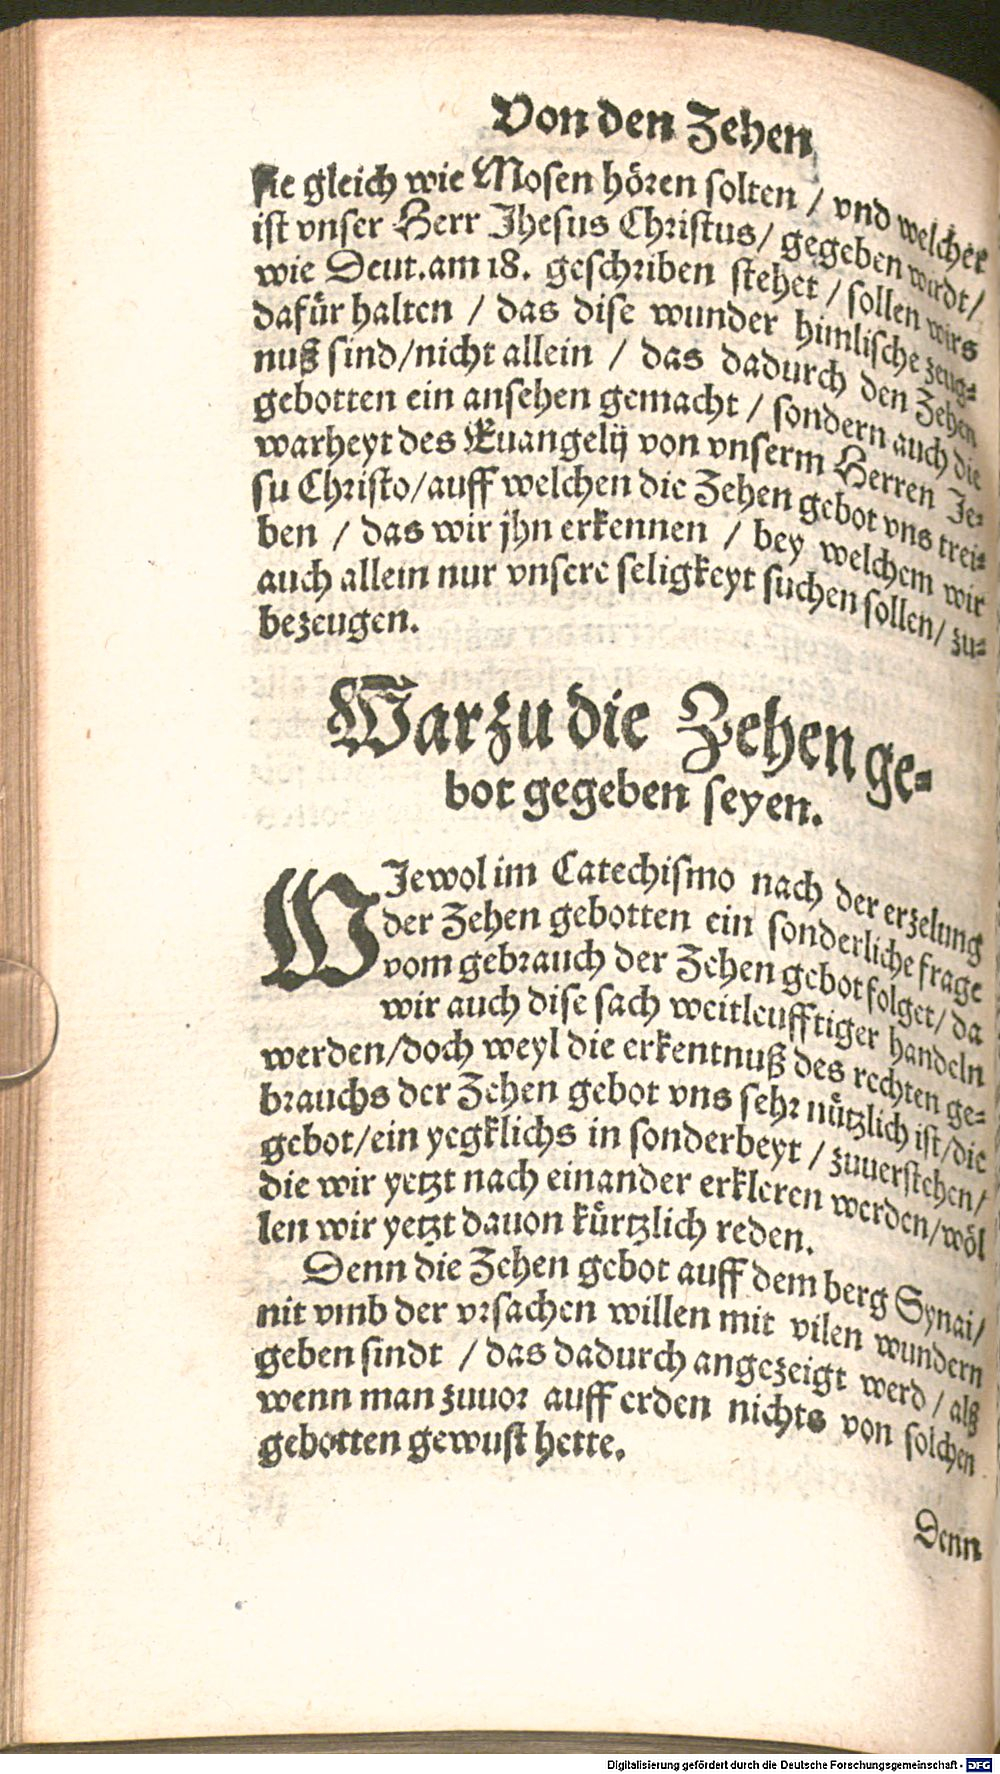 Von den Zehen
sie gleich wie Mosen hören solten / vnd welcher
ist vnser Herr Jhesus Christus / gegeben wirdt /
wie Deut. am 18. geschriben stehet / sollen wirs
dafür halten / das dise wunder himlische zeug-
nuß sind / nicht allein / das dadurch den Zehen
gebotten ein ansehen gemacht / sondern auch die
warheyt des Euangelij von vnserm Herren Je-
su Christo / auff welchen die Zehen gebot vns trei-
ben / das wir jhn erkennen / bey welchem wir
auch allein nur vnsere seligkeyt suchen sollen / zu-
bezeugen.
Warzu die Zehen ge-
bot gegeben seyen.
WJewol im Catechismo nach der erzelung
der Zehen gebotten ein sonderliche frage
vom gebrauch der Zehen gebot folget / da
wir auch dise sach weitleufftiger handeln
werden / doch weyl die erkentnuß des rechten ge-
brauchs der Zehen gebot vns sehr nützlich ist / die
gebot / ein yegklichs in sonderheyt / zuuerstehen /
die wir yetzt nach einander erkleren werden / wöl
len wir yetzt dauon kürtzlich reden.
Denn die Zehen gebot auff dem berg Synai /
nit vmb der vrsachen willen mit vilen wundern
geben sindt / das dadurch angezeigt werd / alß
wenn man zuuor auff erden nichts von solchen
gebotten gewust hette.
Denn
Digitalisierung gefördert durch die Deutsche Forschungsgemeinschaft - DFG